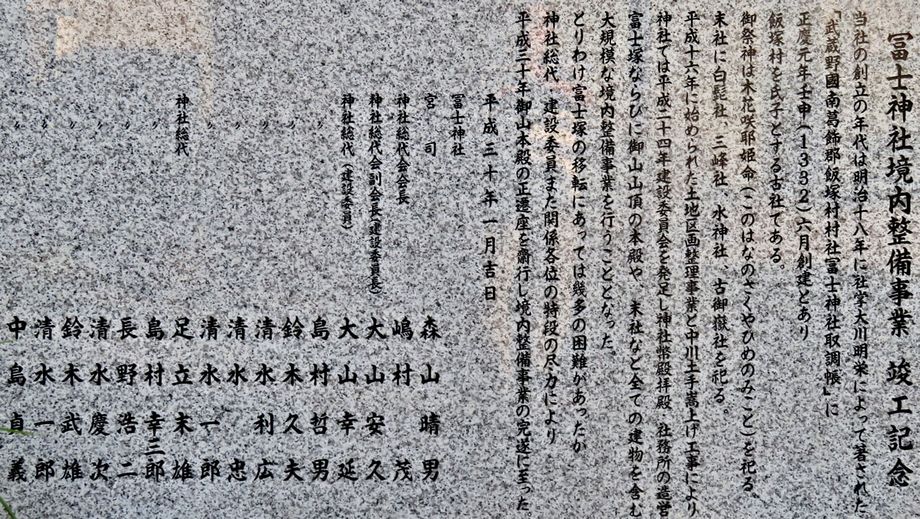 冨士神社境内整備事業 竣工記念
当社の創立の年代は明治十八年に社掌大川明栄によって著された
「武蔵野國南葛飾郡飯塚村村社冨士神社取調帳」に
正慶元年壬申(1332)六月創建とあり
飯塚村を氏子とする古社である。
御祭神は木花咲耶姫命(このはなのさくやひめのみこと)を祀る。
末社に白髭社、三峰社、水神社、古御嶽社を祀る。
平成十六年に始められた土地区画整理事業と中川土手嵩上げ工事により
神社では平成二十四年建設委員会を発足し神社幣殿拝殿、社務所の造営
富士塚ならびに御山山頂の本殿や、末社など全ての建物を含む
大規模な境内整備事業を行うこととなった。
とりわけ富士塚の移転にあっては幾多の困難があったが
神社総代、建設委員また関係各位の特段の尽力により
平成三十年御山本殿の正遷座を斎行し境内整備事業の完遂に至った
平成三十年一月吉日
冨士神社
宮司 森山晴男
神社総代会会長 嶋村茂
神社総代会副会長(建設委員長) 大山安久
神社総代(建設委員) 大山幸延
〃 島村哲男
〃 鈴木久夫
〃 清水利広
〃 清水忠
〃 清水一郎
神社総代 足立末雄
〃 島村幸三郎
〃 長野浩二
〃 清水慶次
〃 鈴木武雄
〃 清水一郎
〃 中島貞義